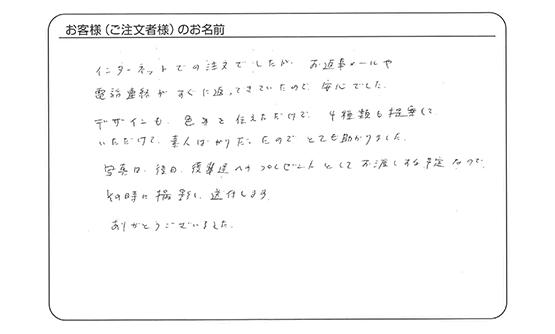 お客様（ご注文者様）のお名前
インターネットでの注文でしたが、お返事メールや
電話連絡がすぐに返ってきていたので、安心でした。
デザインも、色等を伝えただけで、4種類も提案して
いただけて、素人ばかりだったので とても助かりました。
写真は、後日、卒業生へのプレゼントとしてお渡しする予定なので
その時に撮影し、送付します。
ありがとうございました。